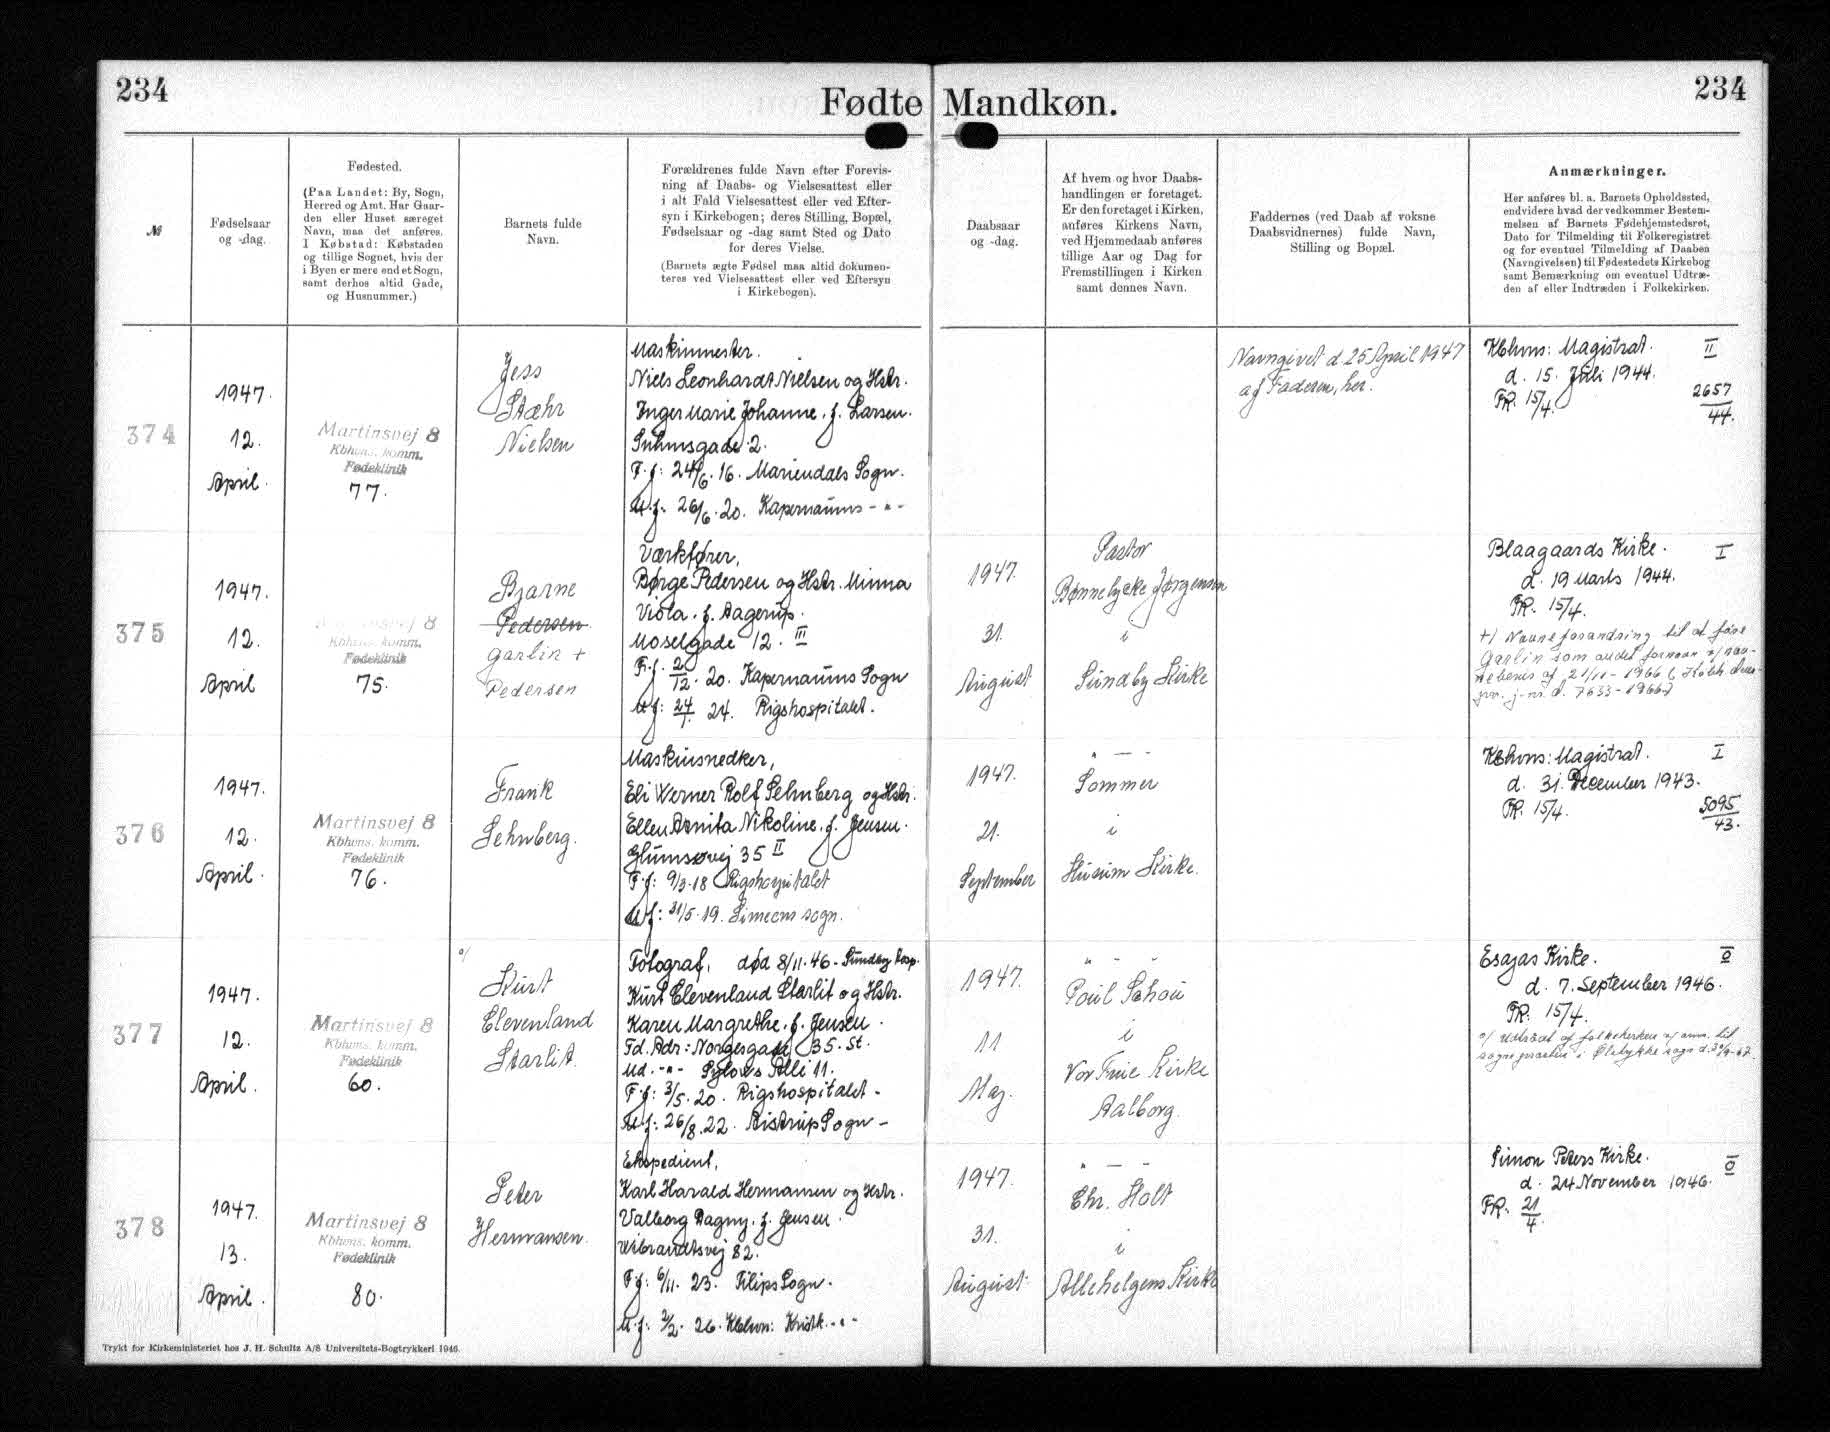 234
234
Fødte Mandkøn.
№
Fødselsaar
og -dag.
Fødested.
(Paa Landet: By, Sogn,
Herred og Amt. Har Gaar-
den eller Huset særeget
Navn, maa det anføres.
I Købstad: Købstaden
og tillige Sognet, hvis der
i Byen er mere end et Sogn,
samt derhos altid Gade,
og Husnummer.)
Barnets fulde
Navn.
Forældrenes fulde Navn efter Forevis-
ning af Daabs- og Vielsesattest eller
i alt Fald Vielsesattest eller ved Efter-
syn i Kirkebogen; deres Stilling, Bopæl,
Fødselsaar og -dag samt Sted og Dato
for deres Vielse.
(Barnets ægte Fødsel maa altid dokumen-
teres ved Vielsesattest eller ved Eftersyn
i Kirkebogen).
Daabsaar
og -dag.
Af hvem og hvor Daabs-
handlingen er foretaget.
Er den foretaget i Kirken,
anføres Kirkens Navn,
ved Hjemmedaab anføres
tillige Aar og Dag for
Fremstillingen i Kirken
samt dennes Navn.
Faddernes (ved Daab af voksne
Daabsvidnernes) fulde Navn,
Stilling og Bopæl.
Anmærkninger.
Her anføres bl. a. Barnets Opholdssted,
endvidere hvad der vedkommer Bestem-
melsen af Barnets Fødehjemstedsret,
Dato for Tilmelding til Folkeregistret
og for eventuel Tilmelding af Daaben
(Navngivelsen) til Fødestedets Kirkebog
samt Bemærkning om eventuel Udtræ-
den af eller Indtræden i Folkekirken.
374
1947.
12.
April.
Martinsvej 8
Kbhvns. komm.
Fødeklinik
77.
Jess
Stæhr
Nielsen
Maskinmester.
Niels Leonhardt Nielsen og Hstr.
Inger Marie Johanne. f. Larsen.
Suhmsgade 2.
F.f: 24/6. 16. Mariendals Sogn.
M.f: 26/6. 20. Kapernaums - " -
Navngivet d 25 April 1947
af Faderen, her.
Kbhvns: Magistrat. II
d. 15. Juli 1944.
FR. 15/4. 2657/44.
375
1947.
12.
April
8
Kbhvns. komm.
Fødeklinik
75.
Bjarne
Pedersen
Garlin +
Pedersen
Værkfører,
Børge Pedersen og Hstr. Minna
Viola. f. Aagerup.
Moselgade 12. III
F.f. 2/12. 20. Kapernaums Sogn
M.f: 24/1. 24. Rigshospitalet.
1947.
31.
August
Pastor
Bønnelycke Jørgensen
i
Sundby Kirke
Blaagaards Kirke. I
d. 19 Marts 1944.
FR. 15/4.
+) Navneforandring til at føre
Garlin som andet fornavn
af 21/11 - 1966
j.nr. d. 7633-1966
376
1947.
12.
April.
Martinsvej 8
Kbhvns. komm.
Fødeklinik
76.
Frank
Sehnberg.
Maskinsnedker,
Eli Werner Rolf Sehnberg og Hstr.
Ellen Annita Nikoline. f. Jensen.
Glumsøvej 35 II
F.f: 9/3. 18 Rigshospitalet
M.f: 31/5. 19. Simeons sogn.
1947.
21.
September
" — -
Sommer
i
Husum Kirke.
Kbhvns: Magistrat. I
d. 31. December 1943.
FR. 15/4. 5095/43.
377
1947.
12.
April.
Martinsvej 8
Kbhvns. komm.
Fødeklinik
60.
o/
Kurt
Elevenland
Starlit.
Fotograf, død 8/11. 46 - Sundby Hosp.
Kurt Elevenland Starlit og Hstr.
Karen Margrethe. f. Jensen.
Fd. Adr: Norgesgade 35. St.
Md. - " - Sylows Alli 11.
F.f: 3/5. 20. Rigshospitalet -
M.f: 26/8. 22. Aistrup Sogn -
1947.
11
Maj.
" - -
Poul Schou
i
Vor Frue Kirke
Aalborg.
Esajas Kirke. 0
d. 7. September 1946.
FR: 15/4.
o/ Udtrådt af folkekirken til
sogne i Ølstykke sogn
378
1947.
13.
April.
Martinsvej 8
Kbhvns. komm.
Fødeklinik
80.
Peter
Hermansen.
Ekspedient,
Karl Harald Hermansen og Hstr.
Valborg Dagny. f. Jensen.
Wibrandtsvej 82.
F.f: 6/11. 23. Filips Sogn.
M.f: 2/2. 26. Kbhvn: Kristk. - " -
1947.
31.
August
" — -
Chr. Holt
i
Allehelgens Kirke
Simon Peters Kirke. 0
d. 24 November 1946.
FR. 21/4.
Trykt for Kirkeministeriet hos J. H. Schultz A/S Universitets-Bogtrykkeri 1946.